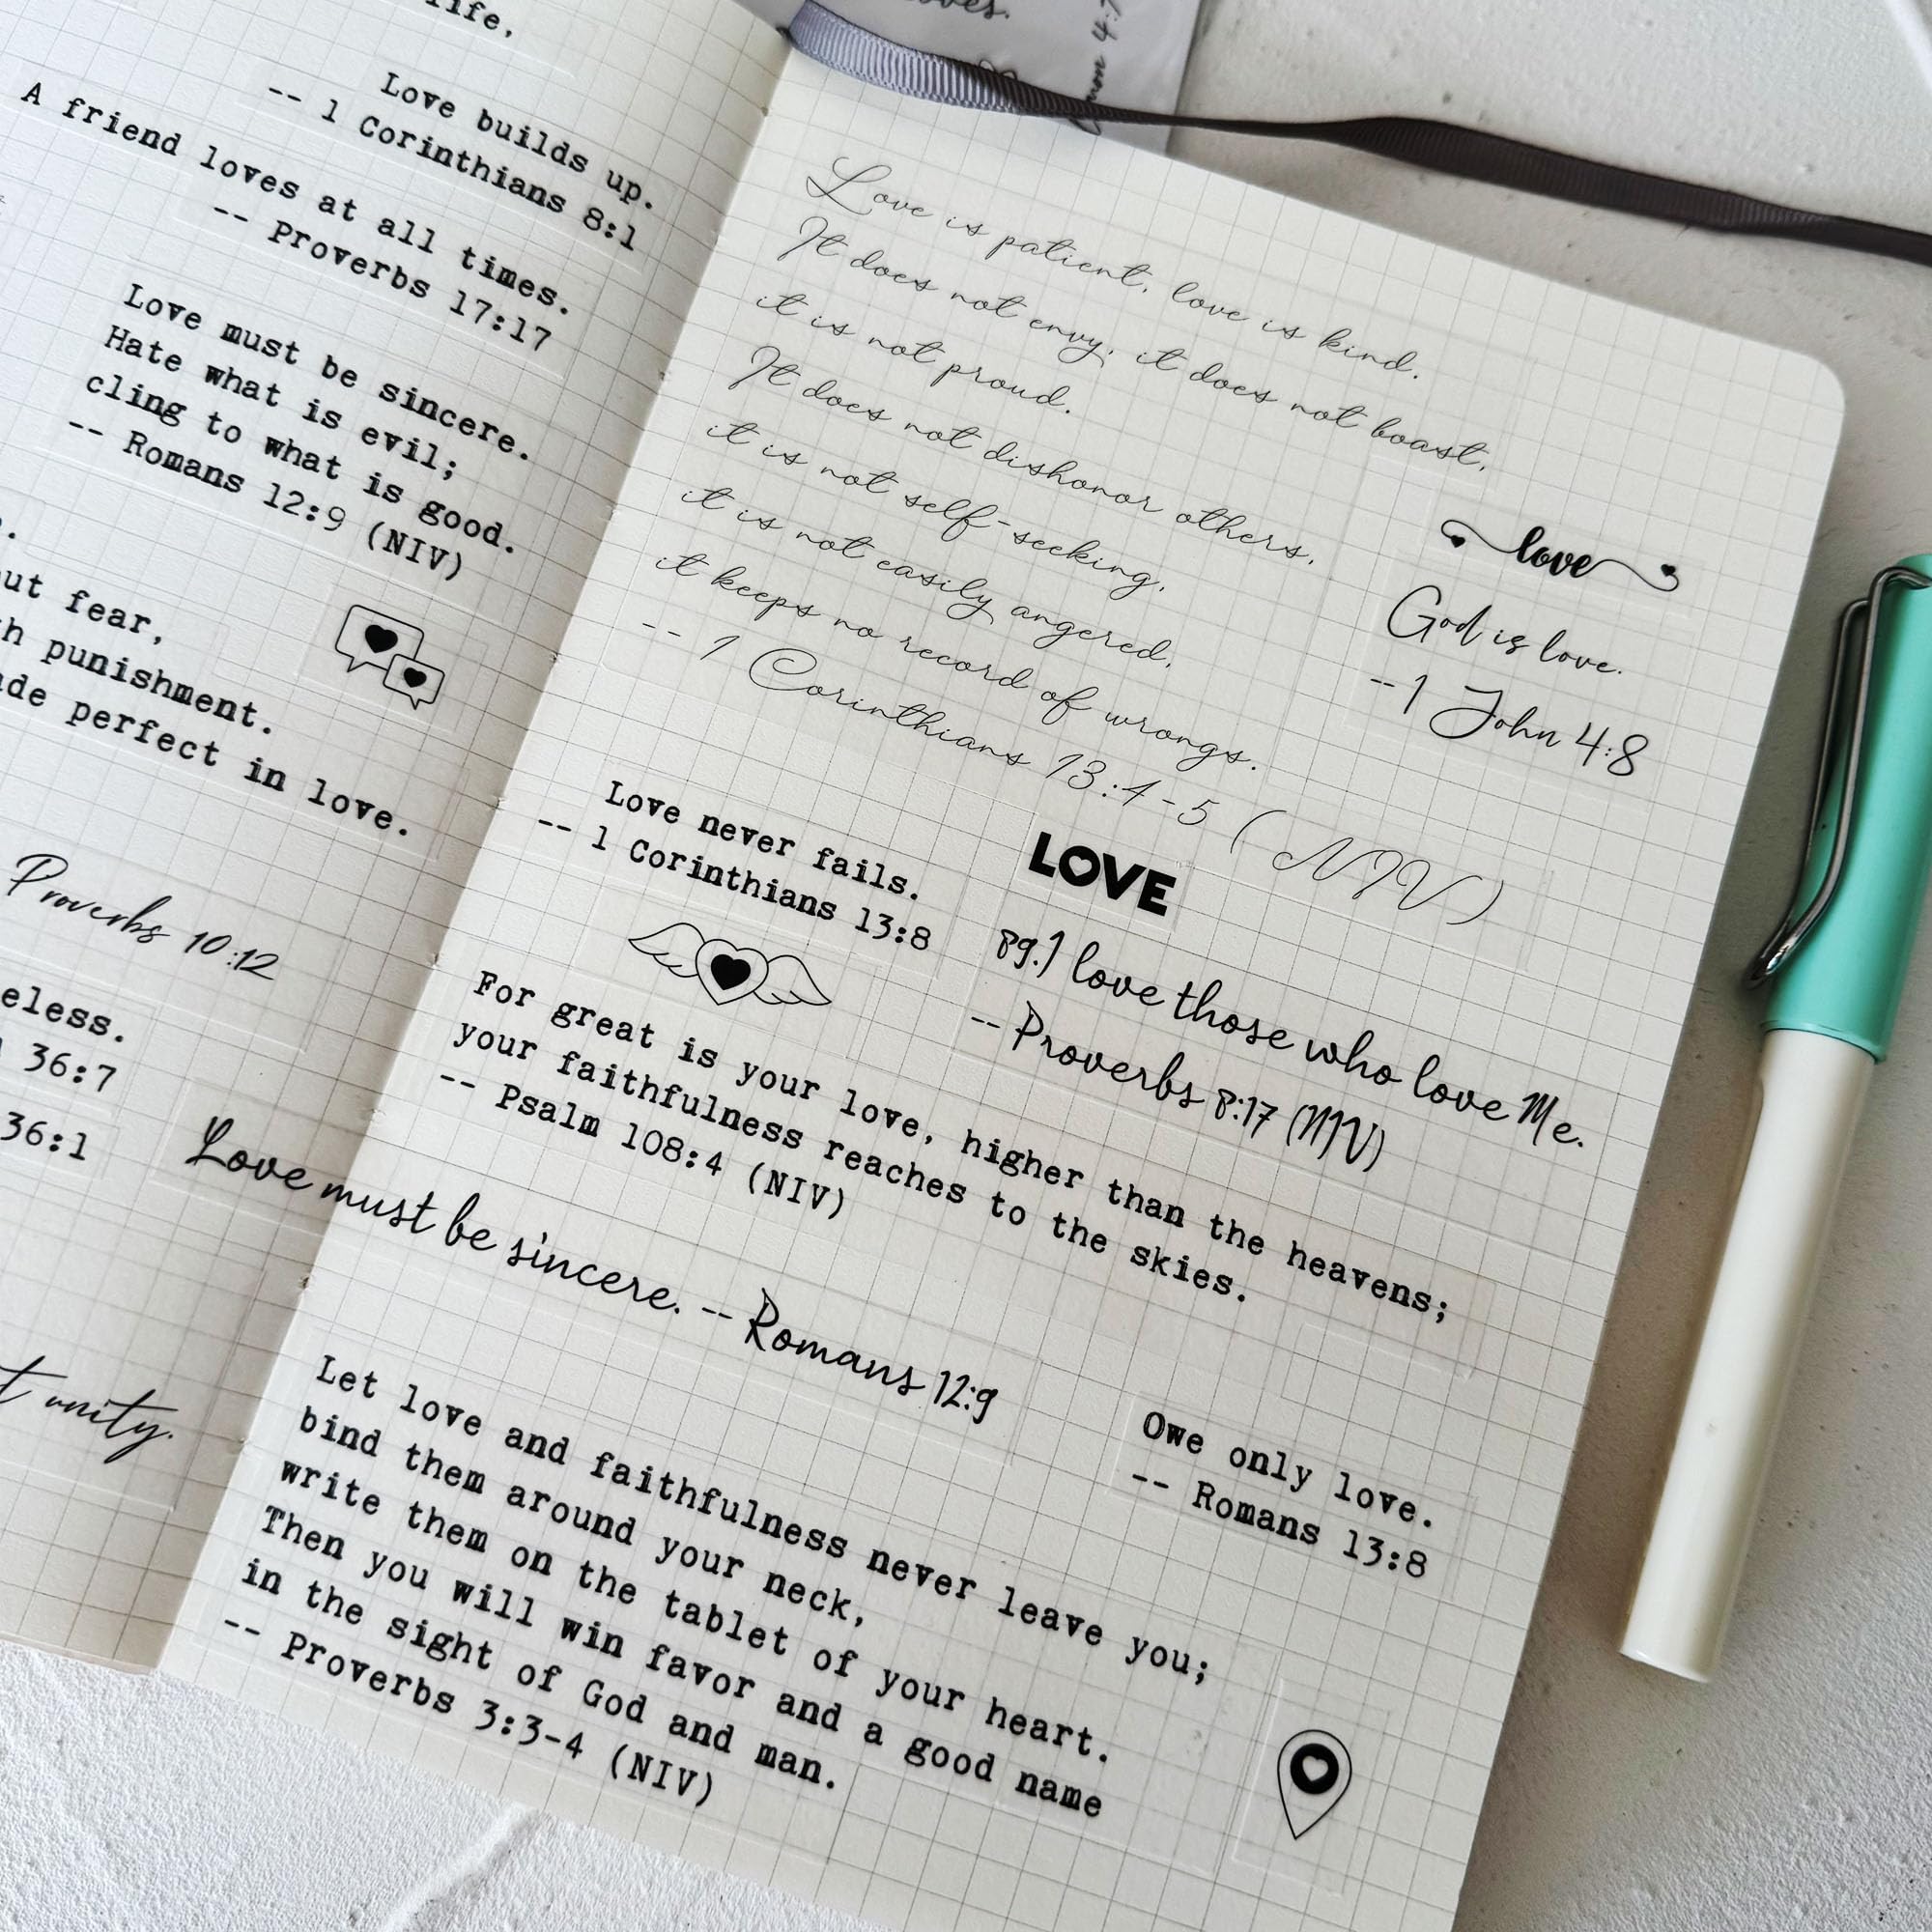 life,
Love builds up.
-- 1 Corinthians 8:1
A friend loves at all times.
-- Proverbs 17:17
Love must be sincere.
Hate what is evil;
cling to what is good.
-- Romans 12:9 (NIV)
fear,
punishment.
perfect in love.
Proverbs 10:12
36:7
36:1
unity.
Love is patient, love is kind.
It does not envy, it does not boast,
it is not proud.
It does not dishonor others,
it is not self-seeking,
it is not easily angered,
it keeps no record of wrongs.
-- 1 Corinthians 13:4-5 (NIV)
love
God is love.
--1 John 4:8
Love never fails.
-- 1 Corinthians 13:8
LOVE
89.I love those who love Me.
-- Proverbs 8:17 (NIV)
For great is your love, higher than the heavens;
your faithfulness reaches to the skies.
-- Psalm 108:4 (NIV)
Love must be sincere. -- Romans 12:9
Owe only love.
-- Romans 13:8
Let love and faithfulness never leave you;
bind them around your neck,
write them on the tablet of your heart.
Then you will win favor and a good name
in the sight of God and man.
-- Proverbs 3:3-4 (NIV)